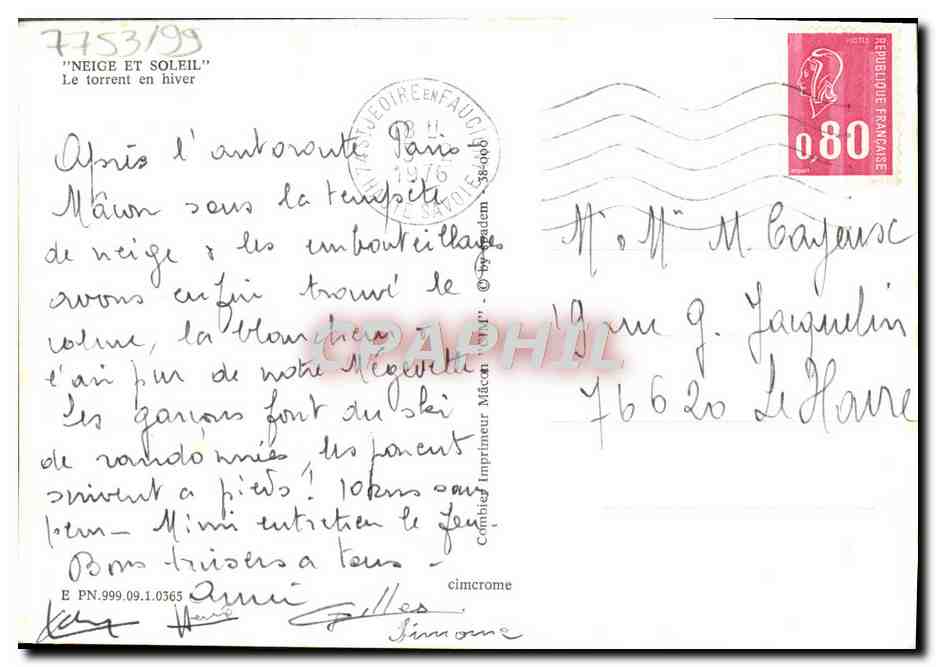 7753/99
"NEIGE ET SOLEIL"
Le torrent en hiver
Après l'autoroute Paris
Mâcon sous la tempête
de neige & les embouteillages
avons enfin trouvé le
calme, la blancheur &
l'air pur de notre Mégevette
Les garçons font du ski
de randonnées, les parents
suivent a pieds! 10 kms sans
peur_ Mimi entretien le feu_
Bons baisers a tous_
cimcrome
E PN.999.09.1.0365
Hervé Gilles
Simone
Combier Imprimeur Mâcon "CIM" - © by spadem - 38-000
74 ST JEOIRE EN FAUCIGNY
1976
HTE SAVOIE
REPUBLIQUE FRANÇAISE
0,80
M. & Mme M. Cayeux
19 rue G. Jacquelin
76620 Le Havre
CPAPHIL